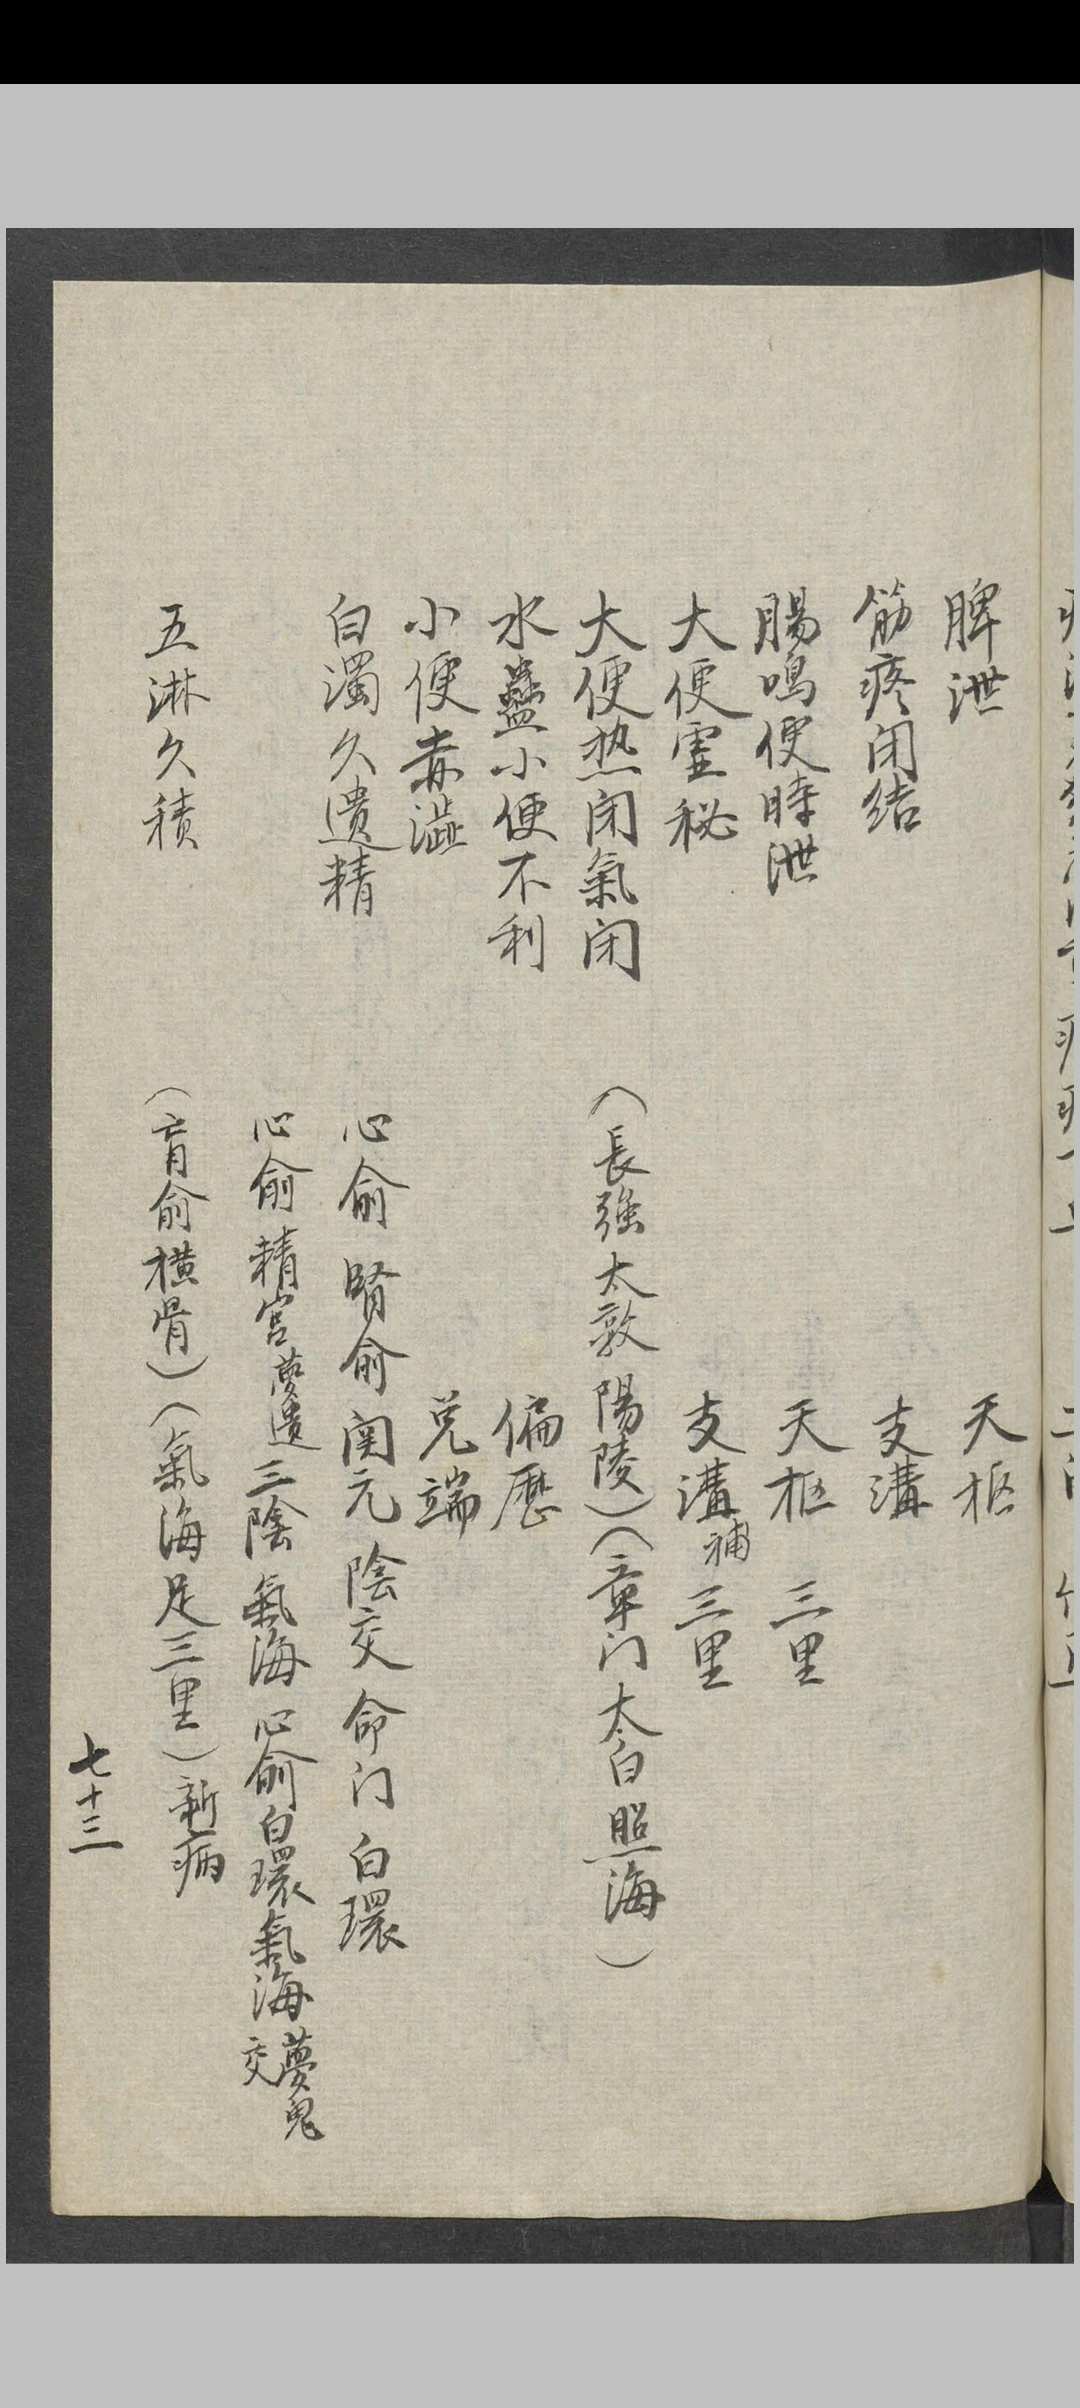 脾泄　天枢
筋疼闭结　支溝
腸鳴便時泄　天枢　三里
大便虚秘　支溝補　三里
大便热闭氣闭　（長強 太敦 陽陵）（章门 太白 照海）
水蠱小便不利　偏歷
小便赤澁　兑端
白濁久遗精　心俞 腎俞 関元 陰交 命门 白環
心俞 精宫夢遗 三陰 氣海 心俞 白環 氣海 夢鬼交
五淋久積　（肓俞 横骨）（氣海 足三里）新病
七十三